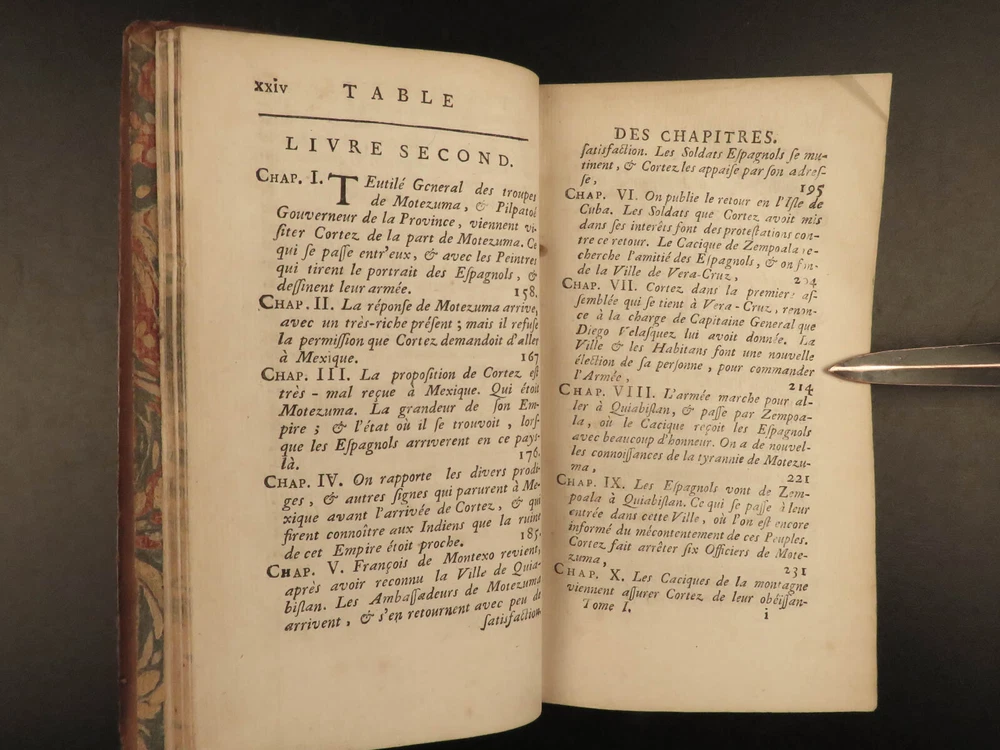 xxiv TABLE
LIVRE SECOND.
CHAP. I. TEutilé General des troupes
de Motezuma, & Pilpatoé
Gouverneur de la Province, viennent vi-
siter Cortez de la part de Motezuma. Ce
qui se passe entr'eux, & avec les Peintres
qui tirent le portrait des Espagnols, &
dessinent leur armée. 158.
CHAP. II. La réponse de Motezuma arrive,
avec un très-riche présent; mais il refuse
la permission que Cortez demandoit d'aller
à Mexique. 167
CHAP. III. La proposition de Cortez est
très-mal reçue à Mexique. Qui étoit
Motezuma. La grandeur de son Em-
pire; & l'état où il se trouvoit, lors-
que les Espagnols arriverent en ce pays-
là. 176.
CHAP. IV. On rapporte les divers prodi-
ges, & autres signes qui parurent à Me-
xique avant l'arrivée de Cortez, & qui
firent connoître aux Indiens que la ruine
de cet Empire étoit proche. 185.
CHAP. V. François de Montexo revient,
après avoir reconnu la Ville de Quia-
bislan. Les Ambassadeurs de Motezuma
arrivent, & s'en retournent avec peu de
satisfaction.
DES CHAPITRES.
satisfaction. Les Soldats Espagnols se mu-
tinent, & Cortez les appaise par son adres-
se, 195
CHAP. VI. On publie le retour en l'Isle de
Cuba. Les Soldats que Cortez avoit mis
dans ses interêts font des protestations con-
tre ce retour. Le Cacique de Zempoala re-
cherche l'amitié des Espagnols, & on fon-
de la Ville de Vera-Cruz, 204
CHAP. VII. Cortez dans la premiere as-
semblée qui se tient à Vera-Cruz, renon-
ce à la charge de Capitaine General que
Diego Velasquez lui avoit donnée. La
Ville & les Habitans font une nouvelle
élection de sa personne, pour commander
l'Armée, 214
CHAP. VIII. L'armée marche pour al-
ler à Quiabislan, & passe par Zempoa-
la, où le Cacique reçoit les Espagnols
avec beaucoup d'honneur. On a de nouvel-
les connoissances de la tyrannie de Motezu-
ma, 221
CHAP. IX. Les Espagnols vont de Zem-
poala à Quiabislan. Ce qui se passe à leur
entrée dans cette Ville, où l'on est encore
informé du mécontentement de ces Peuples.
Cortez fait arrêter six Officiers de Mote-
zuma, 231
CHAP. X. Les Caciques de la montagne
viennent assurer Cortez de leur obéissan-
Tome I. i